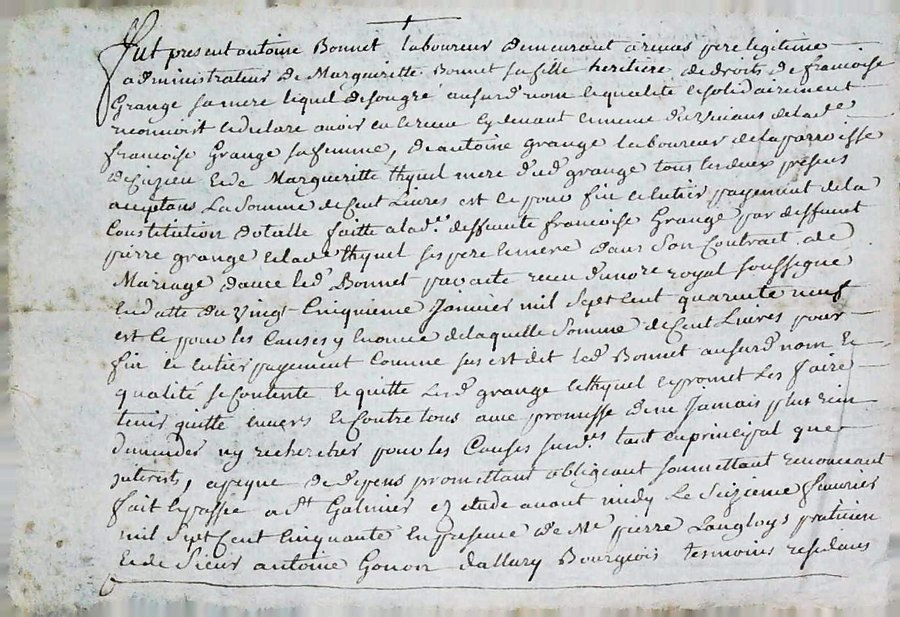 Fut present antoine Bonnet laboureur demeurant a rivas pere legitime
administrateur de Margueritte Bonnet sa fille heritiere de droits de francoise
Grange sa mere liquel de son gré ausurd nom et qualité et solidairement
reconnoist et declare avoir eu et receu cy devant et meme du vivans de lad.e
francoise Grange sa femme, de antoine Grange laboureur de la parroisse
de Cuzieu et de Margueritte thyvel mere dud grange tous les deux presens
aceptans La Somme de Cent Livres est ce pour fin et entier payement de la
Constitution dotalle faitte a lad.e deffunte francoise Grange par deffunt
pierre grange et lade thyvel ses pere et mere dans Son Contrat de
Mariage d'avec led Bonnet par acte receu du nore royal soussigné
en datte du vingt Cinquieme Janvier mil Sept Cent quarente neuf
est ce pour les Causes y enonce de laquelle Somme de Cent Livres pour
fin et entier payement Comme sus est dit led Bonnet ausurd nom et
qualité se Contente et quitte lesd grange et thyvel et promet Les faire
tenir quitte envers et Contre tous avec promesse de ne Jamais plus rien
demander ny rechercher pour les Causes susd.es tant en principal que
interets, a peyne de depens promettant obligeant soumettant renonceant
fait et passé a St Galmier ez etude avant midy Le Seizieme fevrier
mil Sept Cent Cinquante En presence de Me pierre Langloys praticien
et de Sieur antoine Gonon dallury Bourgeois tesmoins residans